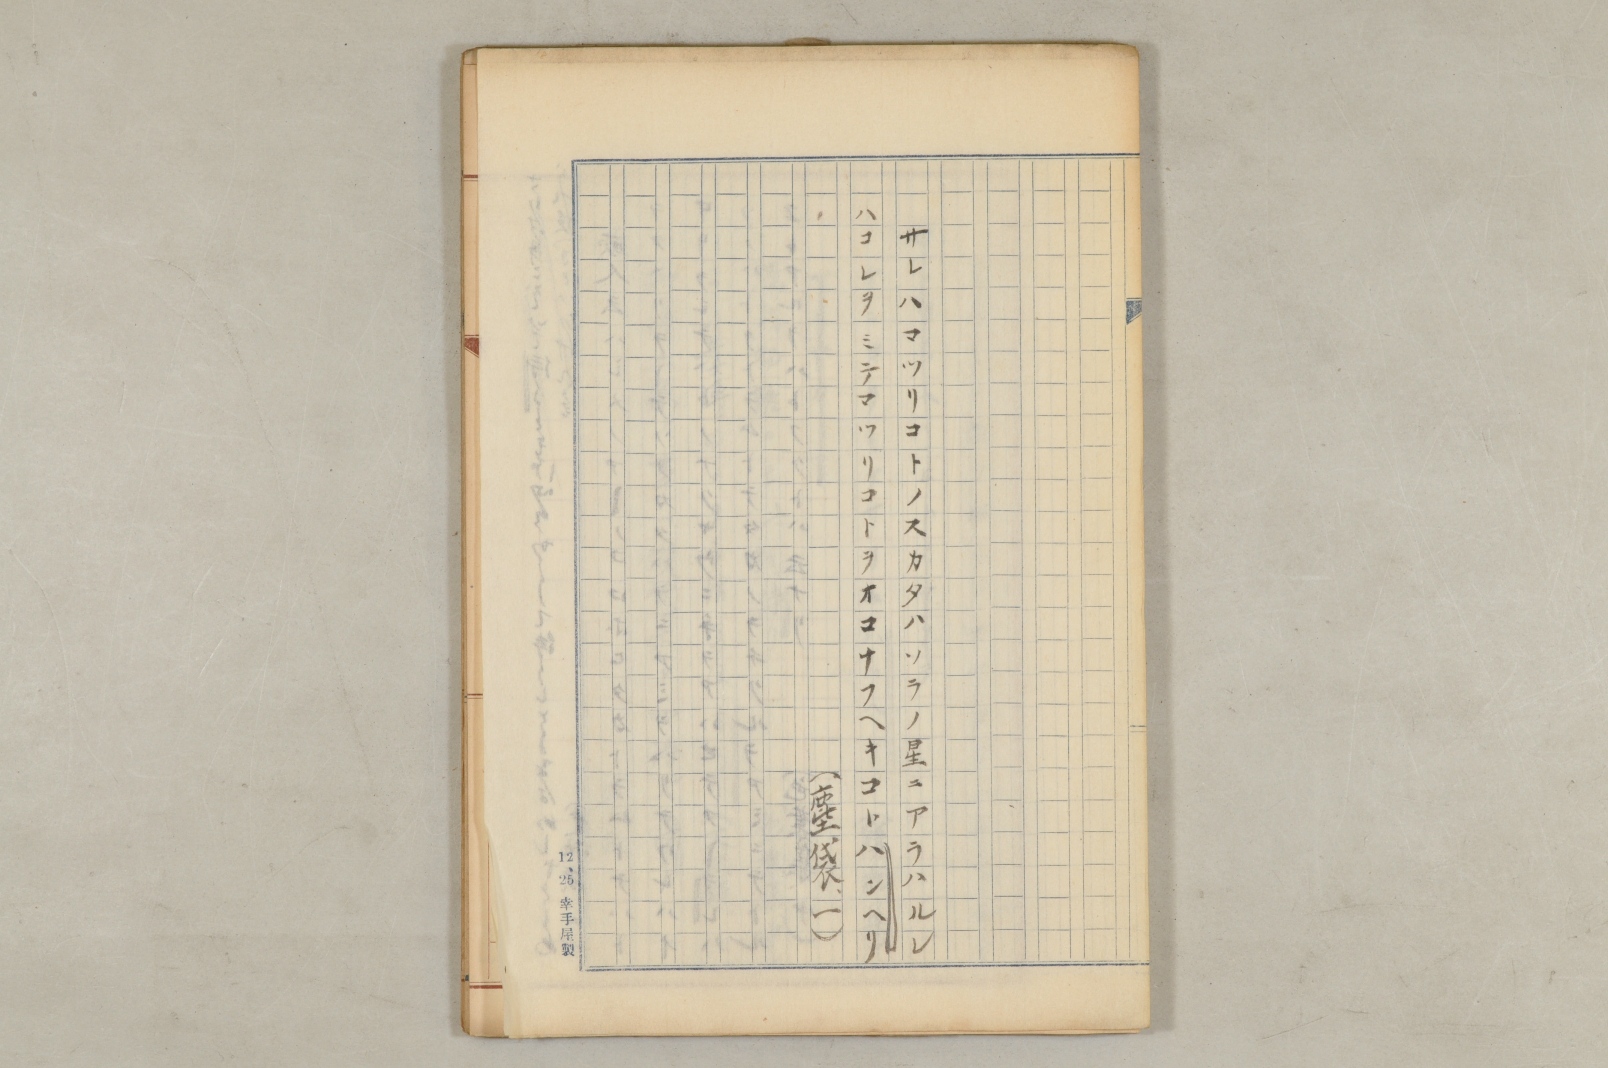 サレハマツリコトノスカタハソラノ星ニアラハルレ
ハコレヲミテマツリコトヲオコナフヘキコトハンヘリ
(塵袋、一)
12、25 幸手屋製